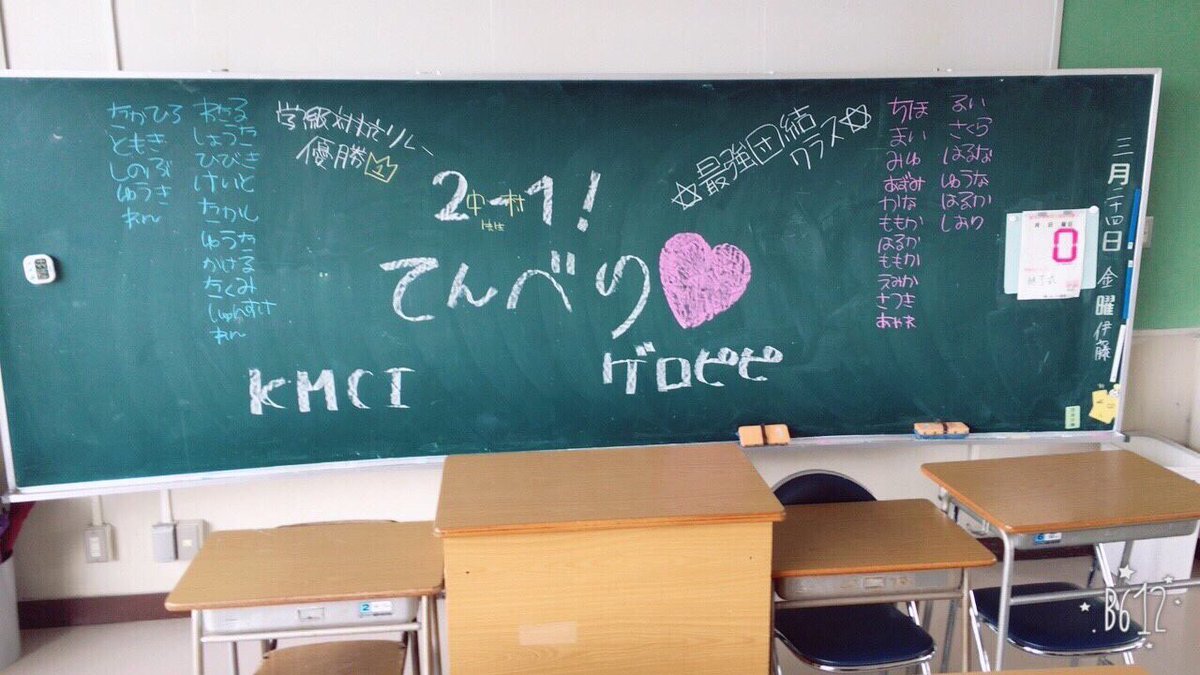 学級対抗リレー
優勝
1
2-1!
中村
てんべり
KMCI
ゲロピピ
☆最強団結
クラス☆
たかひろ
ともき
しのぶ
ゆうき
れん
わたる
しょうた
ひびき
けいと
たかし
ゆうた
かける
たくみ
しゅんすけ
れん
ちほ
まい
みゆ
あずみ
かな
ももか
はるか
ももか
えみか
さつき
あやえ
るい
さくら
はるな
ゆうな
はるか
しおり
三月二十四日 金曜 伊藤
月 日 曜日
0
修了式
2
6
B612